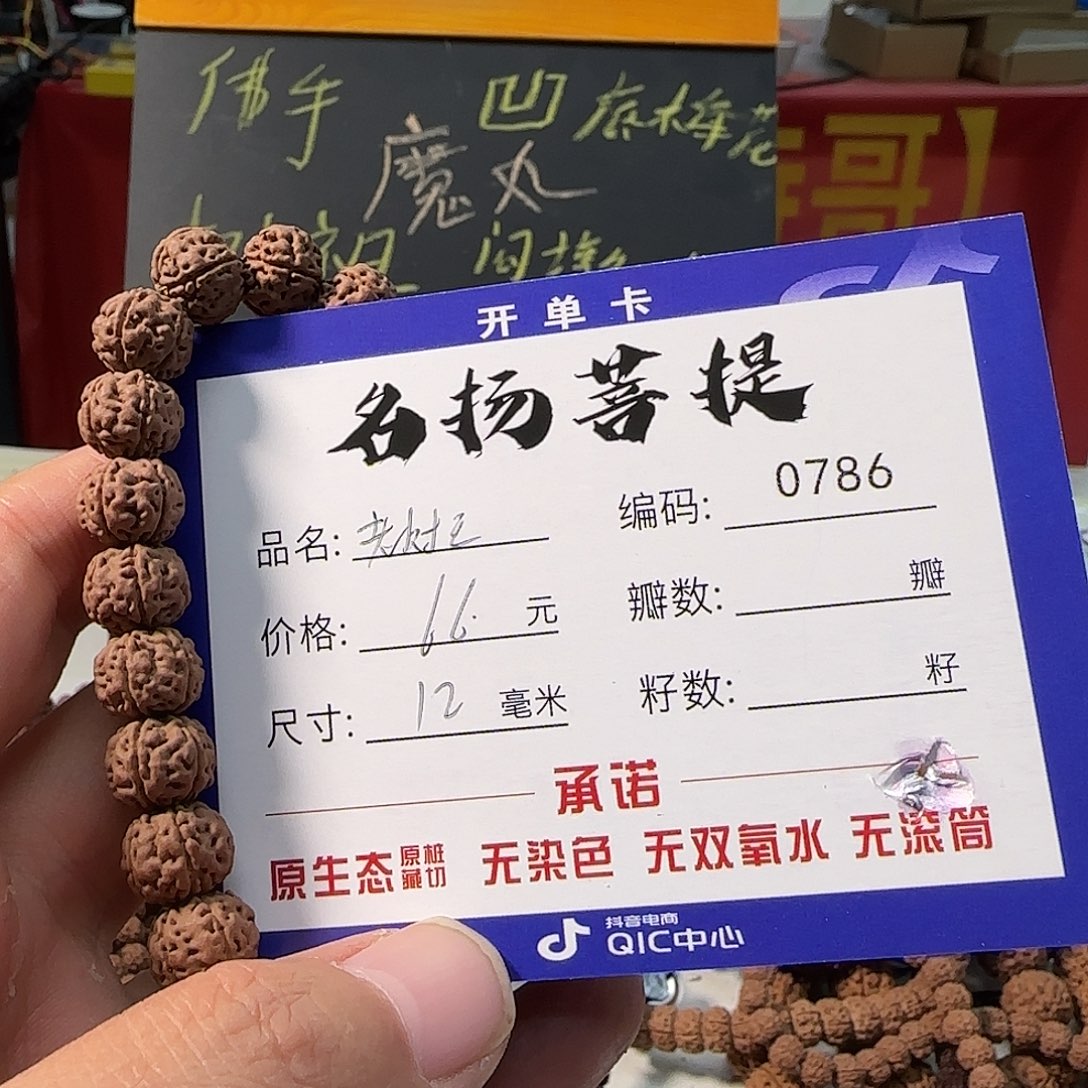 佛手 凹底梅花
魔丸
哥】
开单卡
名扬菩提
品名: 老树王 编码: 0786
价格: 66元 瓣数: 瓣
尺寸: 12毫米 籽数: 籽
承诺
原生态原桩藏切 无染色 无双氧水 无滚筒
抖音电商
QIC中心